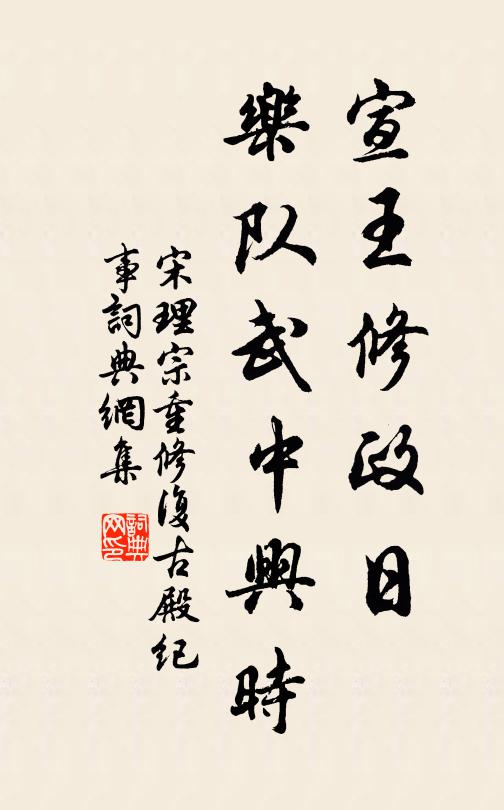 宣王修政日
樂队武中興時
宋理宗重修復古殿紀
事詞典網集
詞典网印